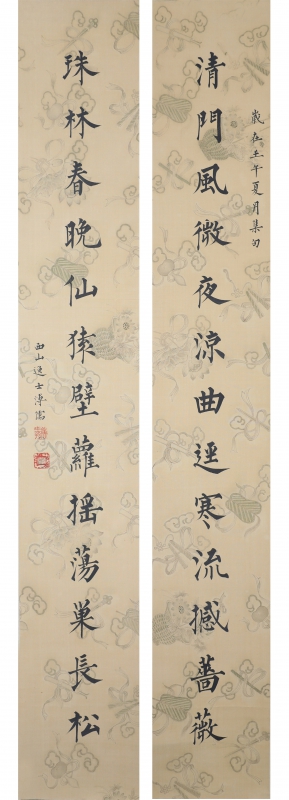 歲在壬午夏月集句
清門風微夜涼曲逕寒流撼薔薇
珠林春晚仙猿壁蘿搖蕩巢長松
西山逸士溥儒